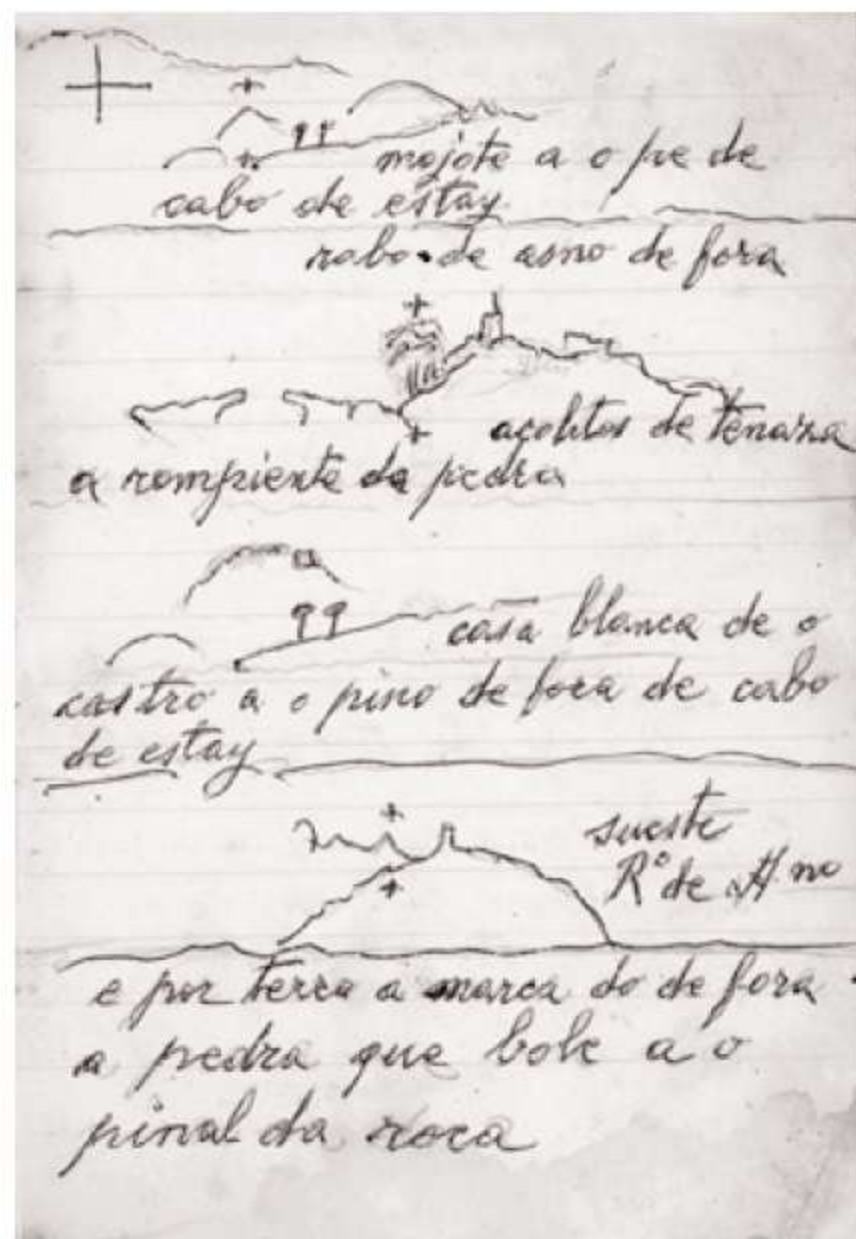 mojote a o pe de
cabo de estay
rabo de asno de fora
acolitos de tenaza
a rompiente da pedra
casa blanca de o
castro a o pino de fora de cabo
de estay
sueste
Rº de A no
e por terra a marca do de fora
a pedra que bole a o
pinal da roca